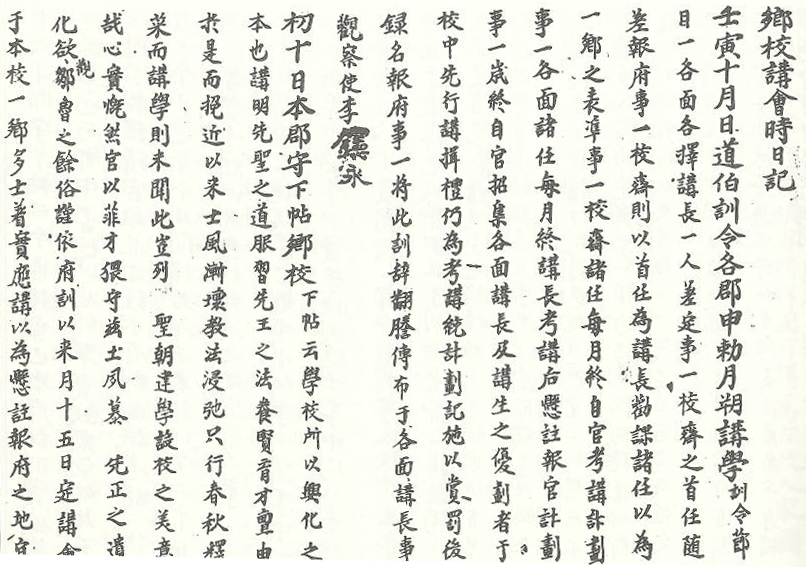 鄕校講會時日記
壬寅十月日道伯訓令各郡申勅月朔講學訓令節
目一各面各擇講長一人差定事一校齋之首任随
差報府事一校齋則以首任為講長勸課諸任以為
一鄕之表準事一校齋諸任每月終自官考講計劃
事一各面諸任每月終講長考講后懸註報官計劃
事一歲終自官招集各面講長及講生之優劃者于
校中先行講揖禮仍為考講統計劃記施以賞罰後
録名報府事一將此訓辭翻謄傳布于各面講長事
觀察使李 永
初十日本郡守下帖鄕校下帖云學校所以興化之
本也講明先聖之道服習先王之法養賢育才亶由
於是而挽近以来士風漸壞教法浸弛只行春秋釋
菜而講學則未聞此豈列 聖朝建學設校之美意
哉心實慨然官以菲才猥守玆土夙慕 先正之遺
化欲觀鄒魯之餘俗謹依府訓以来月十五日定講會
于本校一鄕多士着實應講以為懸註報府之地宜